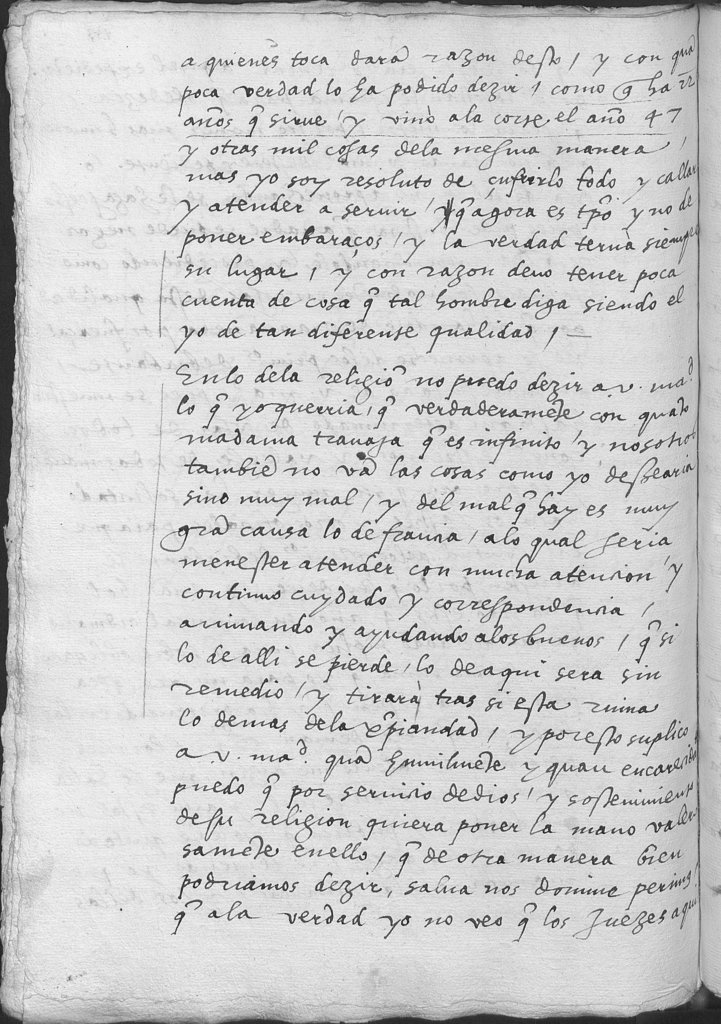 a quienes toca dara razon desto / y con quã
poca verdad lo ha podido dezir / como q̃ ha 22
años q̃ sirue / y vino a la corte el año 47
y otras mil cosas dela mesma manera /
mas yo soy resoluto de çufrirlo todo y callar
y atender a seruir / y q̃ agora es tpõ y no de
poner embaraços / y la verdad terna siempre
su lugar / y con razon deuo tener poca
cuenta de cosa q̃ tal hombre diga siendo el
yo de tan diferente qualidad /
En lo dela religiõ no puedo dezir a v. mad.
lo q̃ yo querria / q̃ verdaderamẽte con quãto
madama trauaja q̃ es infinito / y nosotros
tambiẽ no vã las cosas como yo dessearia
sino muy mal / y del mal q̃ hay es muy
grã causa lo de francia / a lo qual seria
menester atender con mucha atencion / y
continuo cuydado y correspondencia /
animando y ayudando a los buenos / q̃ si
lo de alli se pierde / lo de aqui sera sin
remedio / y tirara tras si esta ruina
lo demas dela xp̃iandad / y por esto suplico
a v. mad. quã humilmẽte y quan encarecidamẽte
puedo q̃ por seruicio de dios / y sostenimiento
de su religion quiera poner la mano valero
samẽte en ello / q̃ de otra manera bien
podriamos dezir, salua nos domine perimus
q̃ a la verdad yo no veo q̃ los Juezes aqui